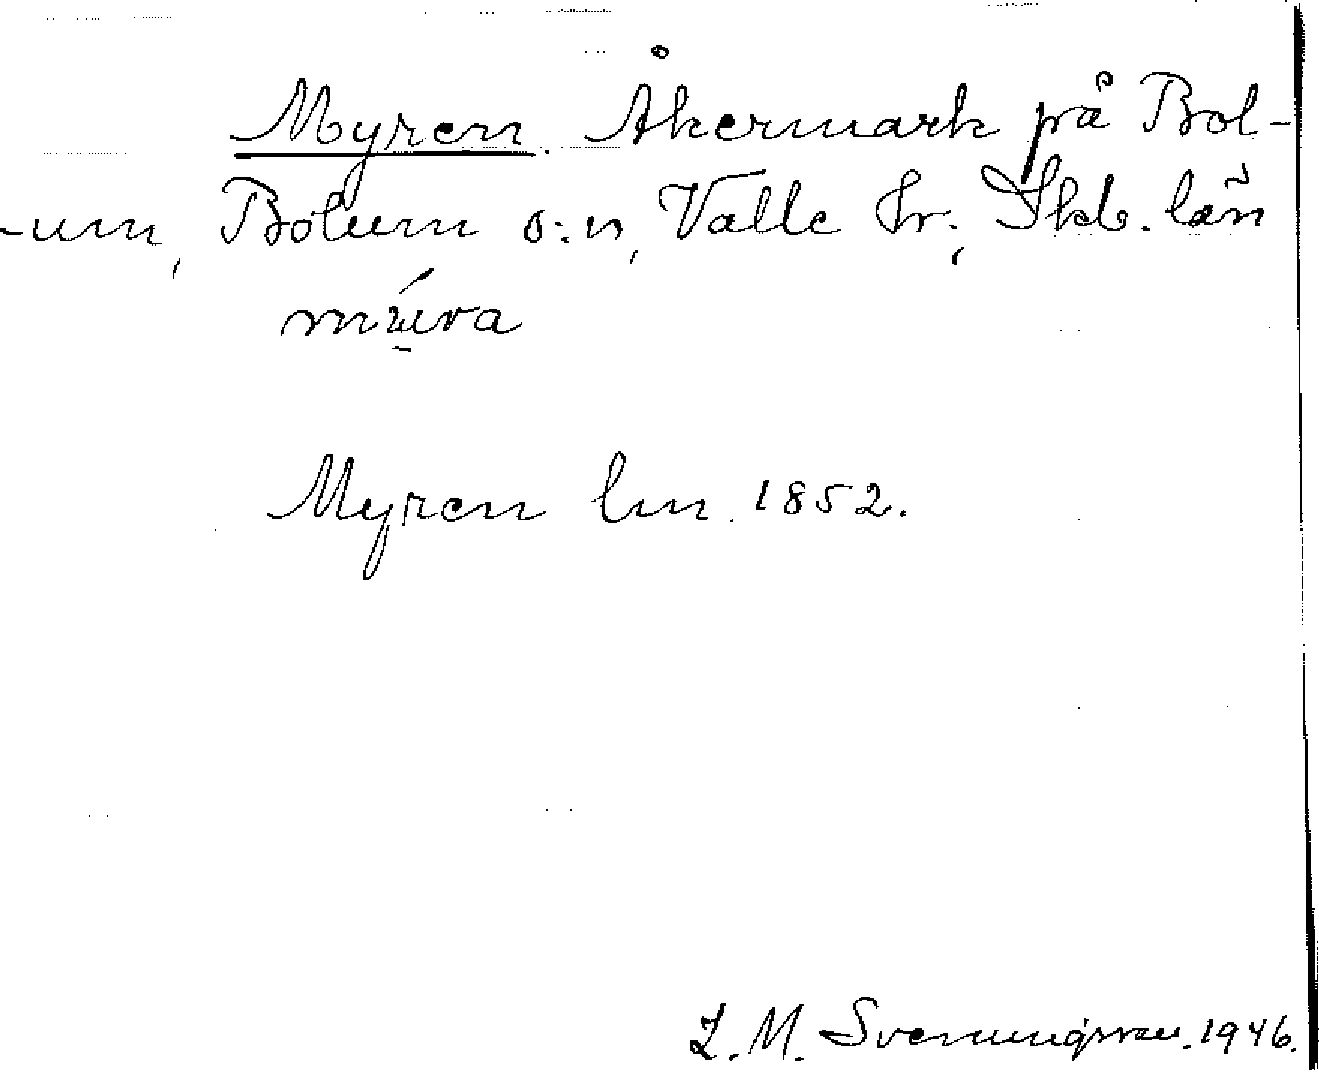 Myren. Åkermark på Bol-
-um, Bolum s:n, Valle hr; Skb. län
mýra
Myren lm 1852.
L. M. Svenungsson. 1946.